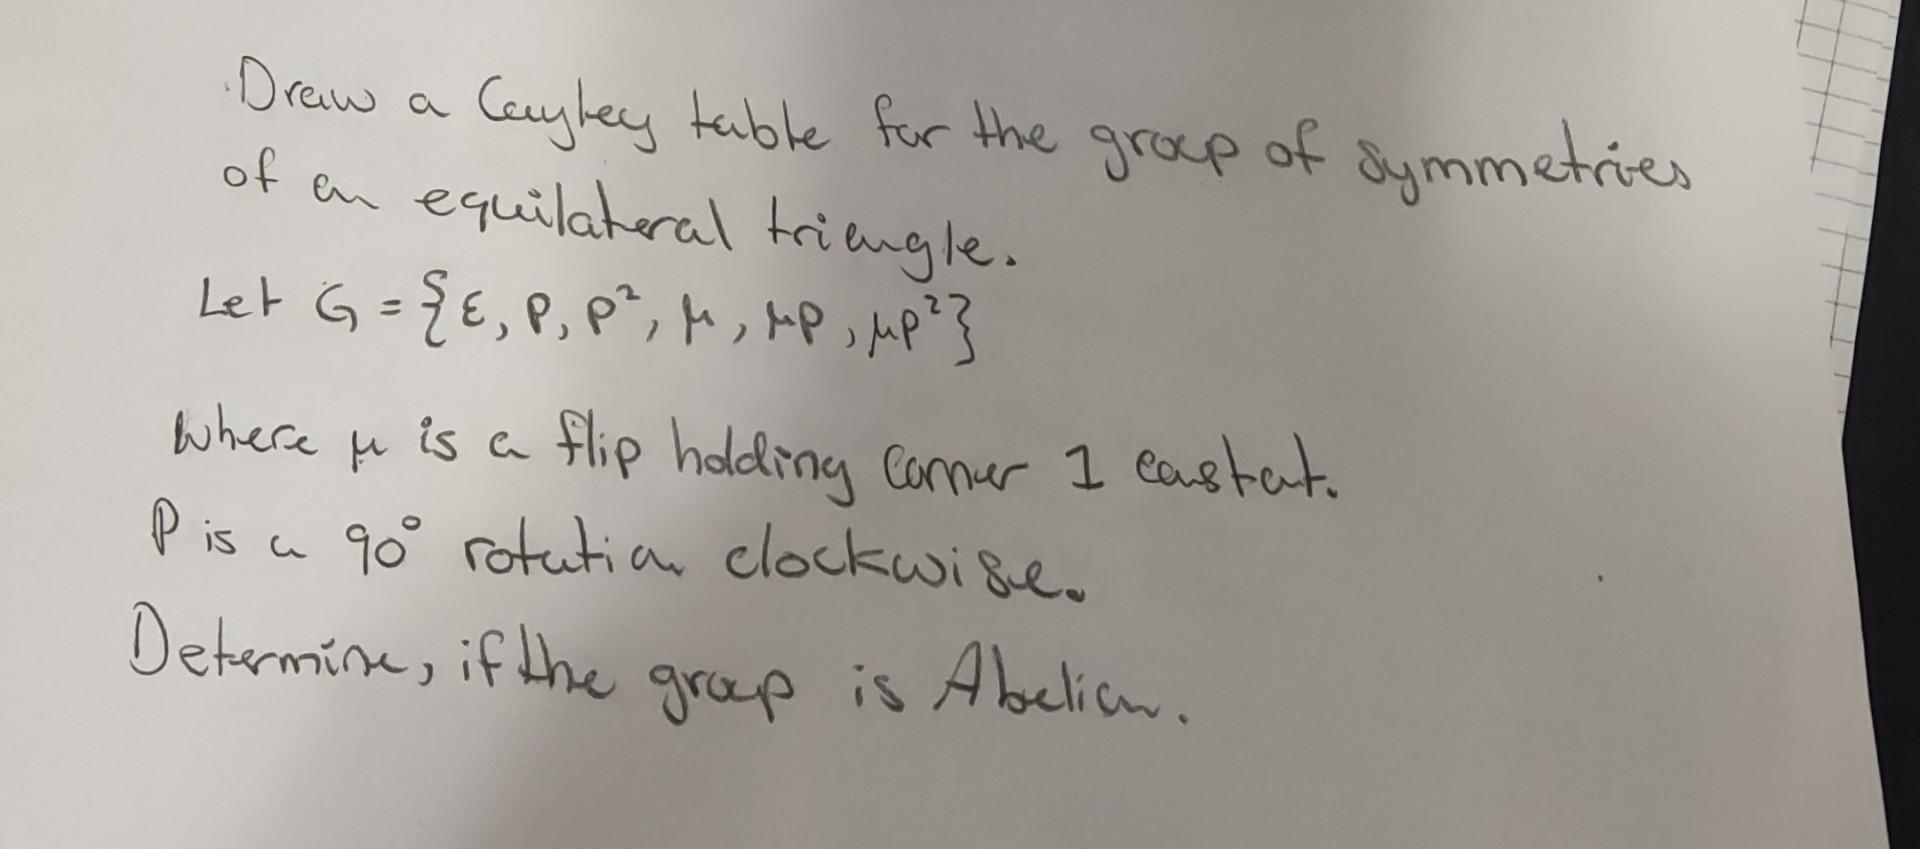 Draw a Cayley table for the group of symmetries
of an equilateral triangle.
Let G = {ε, ρ, ρ², μ, μρ, μρ²}
where μ is a flip holding corner 1 constat.
ρ is a 90° rotation clockwise.
Determine, if the group is Abelian.